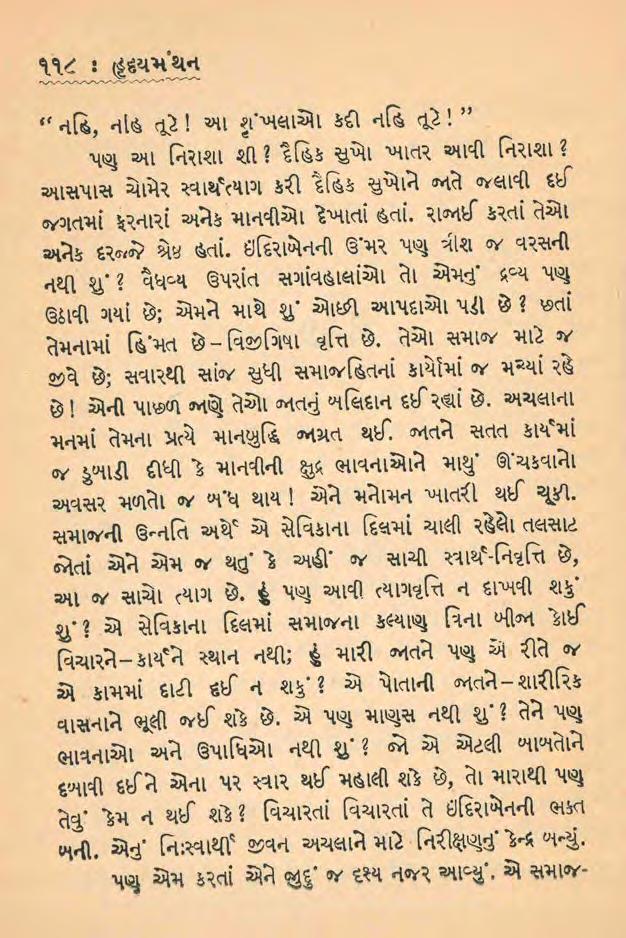 ૧૧૮ : હૃદયમંથન
“ નહિ, નહિ તૂટે! આ શૃંખલાઓ કદી નહિ તૂટે! ”
પણ આ નિરાશા શી? દૈહિક સુખો ખાતર આવી નિરાશા?
આસપાસ ચોમેર સ્વાર્થત્યાગ કરી દૈહિક સુખોને જાતે જલાવી દઈ
જગતમાં ફરનારાં અનેક માનવીઓ દેખાતાં હતાં. રાજાઈ કરતાં તેઓ
અનેક દરજ્જે શ્રેષ્ઠ હતાં. ઇંદિરાબેનની ઉંમર પણ ત્રીશ જ વરસની
નથી શું? વૈધવ્ય ઉપરાંત સગાંવહાલાંઓ તો એમનું દ્રવ્ય પણ
ઉઠાવી ગયાં છે; એમને માથે શું ઓછી આપદાઓ પડી છે? છતાં
તેમનામાં હિંમત છે – વિજીગિષા વૃત્તિ છે. તેઓ સમાજ માટે જ
જીવે છે; સવારથી સાંજ સુધી સમાજહિતનાં કાર્યોમાં જ મચ્યાં રહે
છે! એની પાછળ જાણે તેઓ જાતનું બલિદાન દઈ રહ્યાં છે. અચલાના
મનમાં તેમના પ્રત્યે માનબુદ્ધિ જાગ્રત થઈ. જાતને સતત કાર્યમાં
જ ડુબાડી દીધી કે માનવીની ક્ષુદ્ર ભાવનાઓને માથું ઊંચકવાનો
અવસર મળતો જ બંધ થાય! એને મનોમન ખાતરી થઈ ચૂકી.
સમાજની ઉન્નતિ અર્થે એ સેવિકાના દિલમાં ચાલી રહેલો તલસાટ
જોતાં એને એમ જ થતું કે અહીં જ સાચી સ્વાર્થ-નિવૃત્તિ છે,
આ જ સાચો ત્યાગ છે. હું પણ આવી ત્યાગવૃત્તિ ન દાખવી શકું
શું? એ સેવિકાના દિલમાં સમાજના કલ્યાણ વિના બીજા કોઈ
વિચારને – કાર્યને સ્થાન નથી; હું મારી જાતને પણ એ રીતે જ
એ કામમાં દાટી દઈ ન શકું? એ પોતાની જાતને – શારીરિક
વાસનાને ભૂલી જઈ શકે છે. એ પણ માણસ નથી શું? તેને પણ
ભાવનાઓ અને ઉપાધિઓ નથી શું? જો એ એટલી બાબતોને
દબાવી દઈને એના પર સ્વાર થઈ મહાલી શકે છે, તો મારાથી પણ
તેવું કેમ ન થઈ શકે? વિચારતાં વિચારતાં તે ઇંદિરાબેનની ભક્ત
બની. એનું નિઃસ્વાર્થી જીવન અચલાને માટે નિરીક્ષણનું કેન્દ્ર બન્યું.
પણ એમ કરતાં એને જુદું જ દૃશ્ય નજર આવ્યું. એ સમાજ-